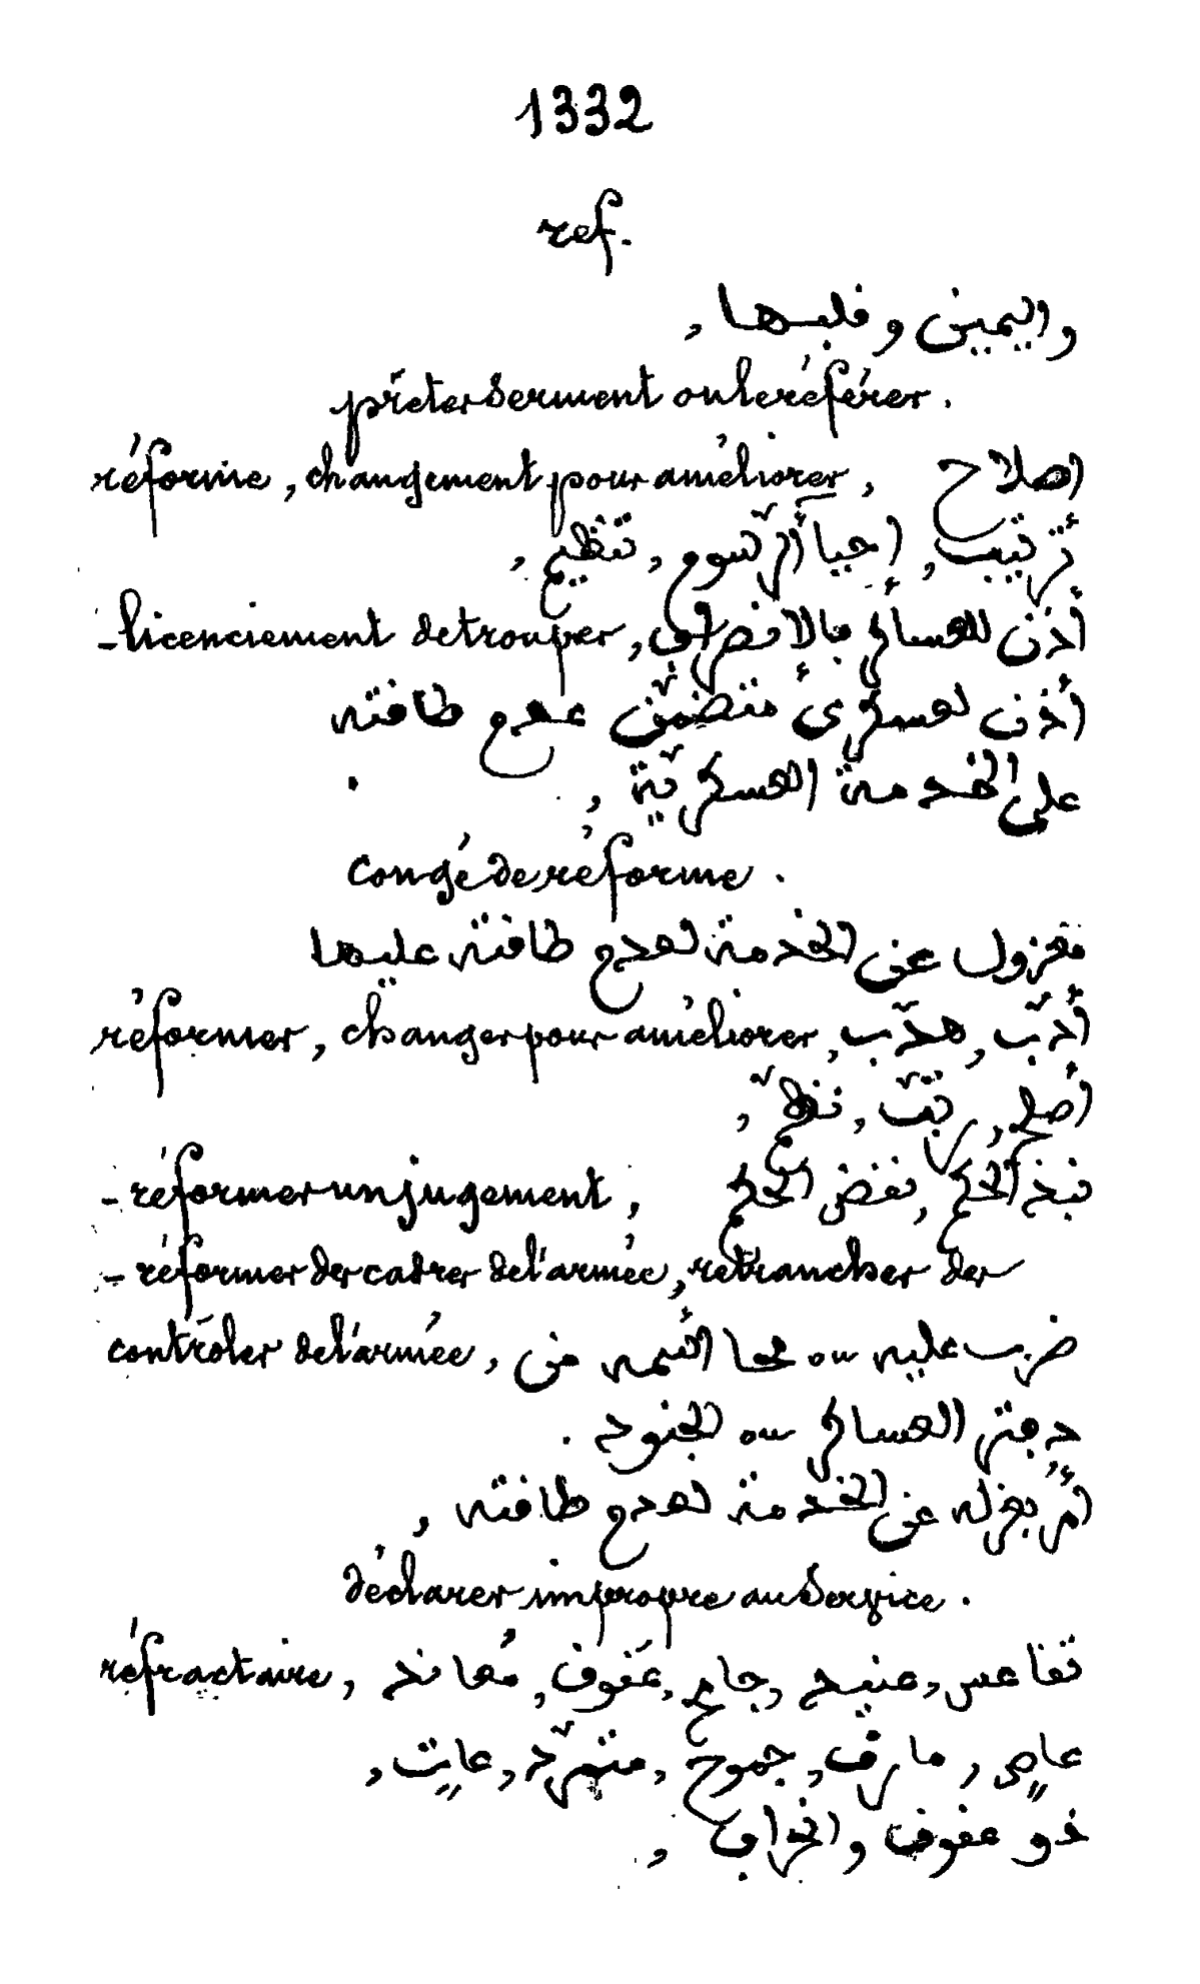 1332
ref.
واليمين وقلبها,
prêter serment ou le référer.
réforme, changement pour améliorer, إصلاح
ترتيب, إحيآ الرسوم, تنظيم,
- licenciement de troupes, أذن للعساكر بالانصراف
أذن لعسكرى متضمّن عدم طاقته
على الخدمة العسكريّة,
congé de réforme.
معزول عن الخدمة لعدم طاقته عليها
réformer, changer pour améliorer, أدّب, هذّب
أصلح, رتّب, نظّم,
- réformer un jugement, نبذ الحكم, نقض الحكم
- réformer des cadres de l'armée, retrancher des
contrôles de l'armée, ضرب عليه ou محا اسمه من
دفتر العساكر ou الجنود.
أمر بعزله عن الخدمة لعدم طاقته,
déclarer impropre au service.
réfractaire, تقاعس, عنيد, جامح, عقوق, معاند
عاصٍ, مارق, جموح, متمرّد, عاتٍ,
ذو عقوق وانحراف,